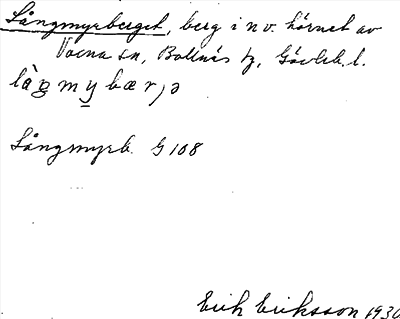 Långmyrberget, berg i nv. hörnet av
Voxna sn, Bollnäs tg, Gävleb. l.
Långmyrb. G 108
Erik Eriksson 1930